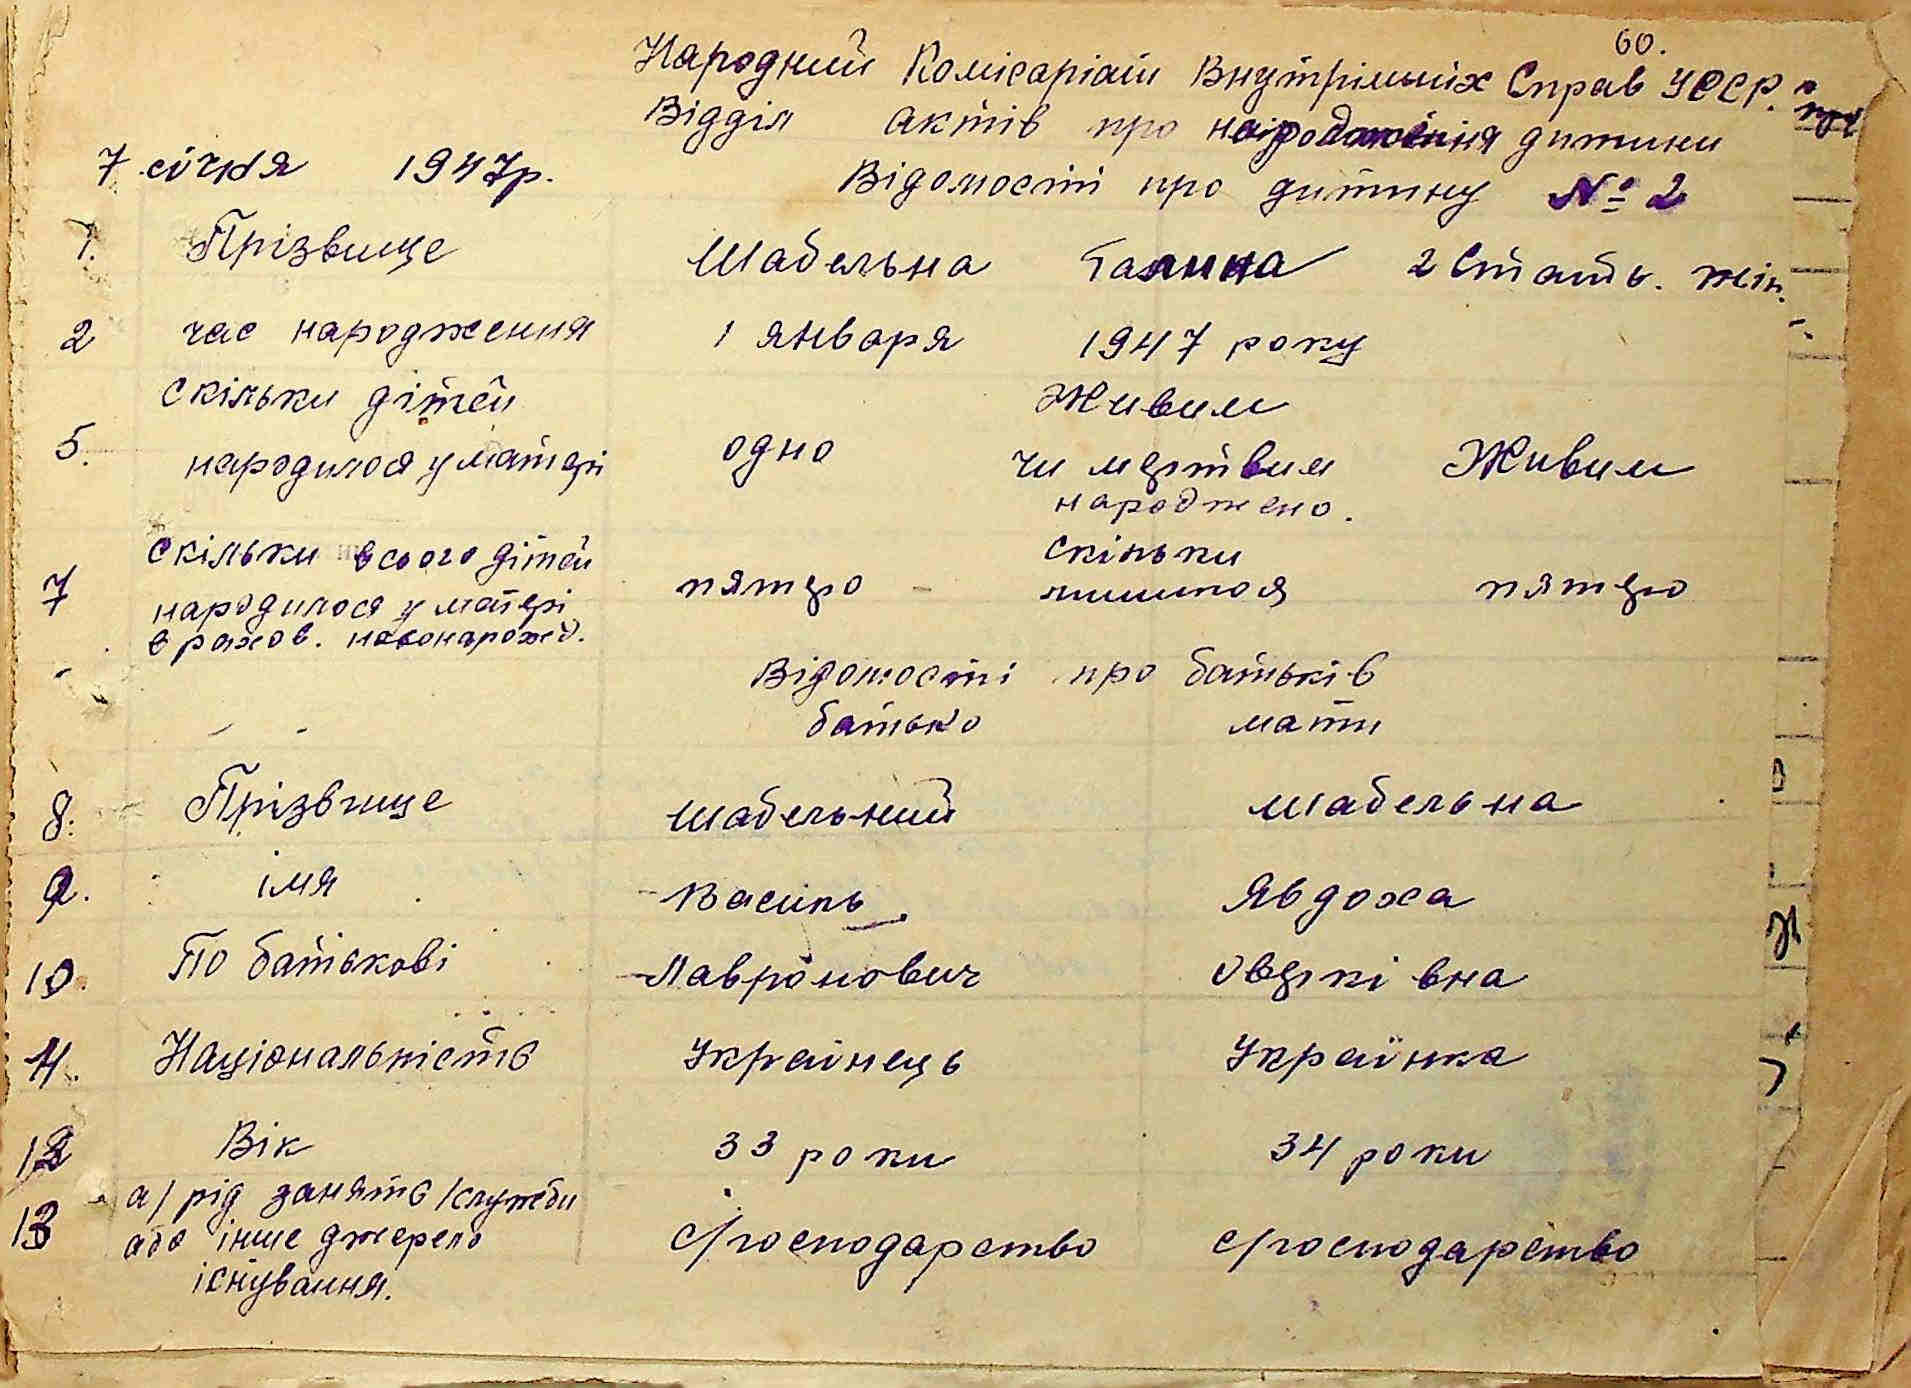 60.
Народний Комісаріат Внутрішніх Справ УССР.
Відділ актів про народження дитини
7 січня 1947р. Відомості про дитину № 2
1. Прізвище Шабельна Галина 2 Стать. жін.
2 час народження 1 января 1947 року
скільки дітей Живим
5. народилося у матері одно чи мертвим Живим
народжено.
скільки всього дітей скільки
7 народилося у матері пятеро лишилося пятеро
в рахов. новонарожд.
Відомості про батьків
батько мати
8. Прізвище Шабельний Шабельна
9. імя Василь Явдоха
10. По батькові Лавронович Оверківна
11. Національність Українець Українка
12 Вік 33 роки 34 роки
а/ рід занять /служби
13 або інше джерело с/господарство с/господарство
існування.